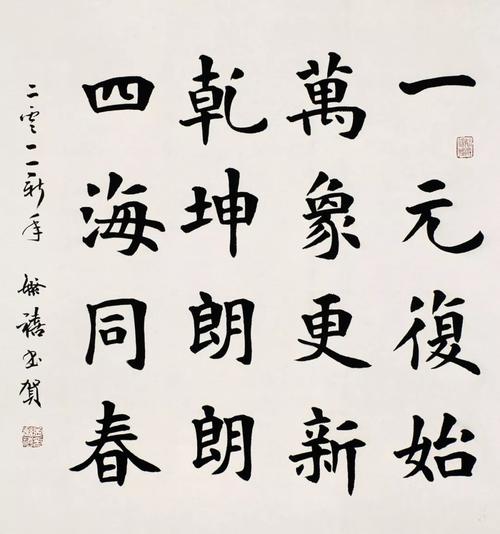 一元復始
萬象更新
乾坤朗朗
四海同春
二零一一新年 燊禧书贺